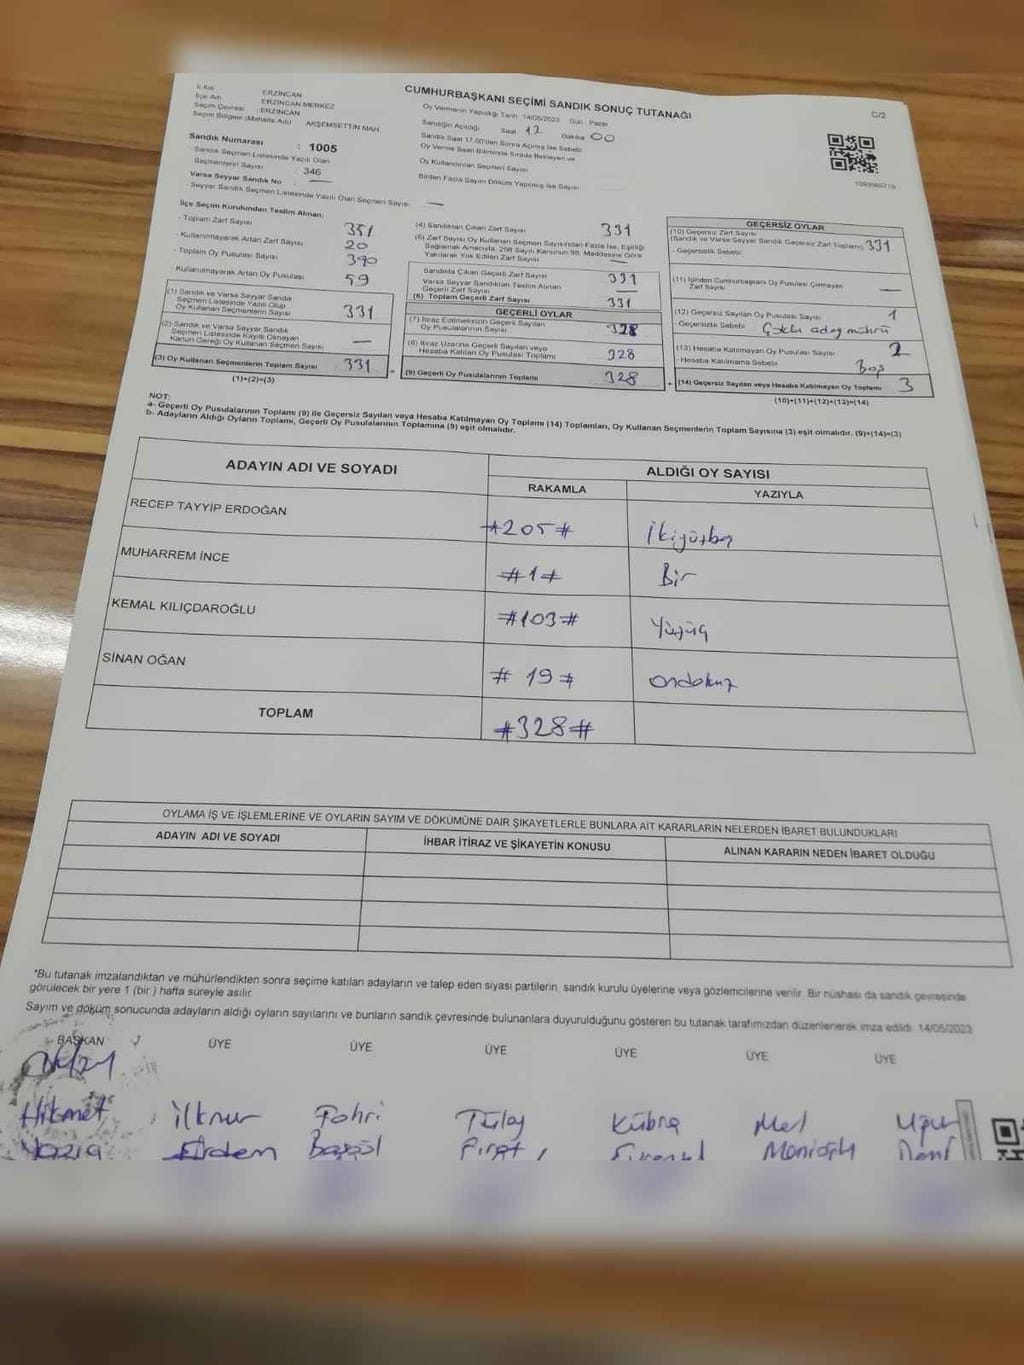 İli Adı : ERZİNCAN
İlçe Adı : ERZİNCAN MERKEZ
Seçim Çevresi : ERZİNCAN
Seçim Bölgesi (Mahalle Adı) AKŞEMSETTİN MAH
Sandık Numarası : 1005
- Sandık Seçmen Listesinde Yazılı Olan
Seçmenlerin Sayısı : 346
Varsa Seyyar Sandık No —
- Seyyar Sandık Seçmen Listesinde Yazılı Olan Seçmen Sayısı —
CUMHURBAŞKANI SEÇİMİ SANDIK SONUÇ TUTANAĞI
C/2
Oy Vermenin Yapıldığı Tarih 14/05/2023 Gün Pazar
Sandığın Açıldığı Saat 17 Dakika 00
Sandık Saat 17.00'den Sonra Açılmış İse Sebebi
Oy Verme Saati Bitiminde Sırada Bekleyen ve
Oy Kullandırılan Seçmen Sayısı
Birden Fazla Sayım Döküm Yapılmış İse Sayısı
İlçe Seçim Kurulundan Teslim Alınan;
- Toplam Zarf Sayısı 351
- Kullanılmayarak Artan Zarf Sayısı 20
- Toplam Oy Pusulası Sayısı 390
- Kullanılmayarak Artan Oy Pusulası 59
(1) Sandık ve Varsa Seyyar Sandık
Seçmen Listesinde Yazılı Olup
Oy Kullanan Seçmenlerin Sayısı 331
(2) Sandık ve Varsa Seyyar Sandık
Seçmen Listesinde Kayıtlı Olmayan
Kanun Gereği Oy Kullanan Seçmen Sayısı —
(3) Oy Kullanan Seçmenlerin Toplam Sayısı 331
(1)+(2)=(3)
(4) Sandıktan Çıkan Zarf Sayısı 331
(5) Zarf Sayısı Oy Kullanan Seçmen Sayısından Fazla İse, Eşitliği
Sağlamak Amacıyla, 298 Sayılı Kanunun 98. Maddesine Göre
Yakılarak Yok Edilen Zarf Sayısı —
Sandıkta Çıkan Geçerli Zarf Sayısı 331
Varsa Seyyar Sandıktan Teslim Alınan
Geçerli Zarf Sayısı —
(6) Toplam Geçerli Zarf Sayısı 331
GEÇERLİ OYLAR
(7) İtiraz Edilmeksizin Geçerli Sayılan
Oy Pusulalarının Sayısı 328
(8) İtiraz Üzerine Geçerli Sayılan veya
Hesaba Katılan Oy Pusulası Toplamı 328
(9) Geçerli Oy Pusulalarının Toplamı 328
GEÇERSİZ OYLAR
(10) Geçersiz Zarf Sayısı
(Sandık ve Varsa Seyyar Sandık Geçersiz Zarf Toplamı) 331
- Geçersizlik Sebebi
(11) İçinden Cumhurbaşkanı Oy Pusulası Çıkmayan
Zarf Sayısı —
(12) Geçersiz Sayılan Oy Pusulası Sayısı 1
- Geçersizlik Sebebi Çoklu aday mührü
(13) Hesaba Katılmayan Oy Pusulası Sayısı 2
- Hesaba Katılmama Sebebi Boş
(14) Geçersiz Sayılan veya Hesaba Katılmayan Oy Toplamı 3
(10)+(11)+(12)+(13)=(14)
NOT:
a- Geçerli Oy Pusulalarının Toplamı (9) ile Geçersiz Sayılan veya Hesaba Katılmayan Oy Toplamı (14) Toplamları, Oy Kullanan Seçmenlerin Toplam Sayısına (3) eşit olmalıdır. (9)+(14)=(3)
b- Adayların Aldığı Oyların Toplamı, Geçerli Oy Pusulalarının Toplamına (9) eşit olmalıdır.
ADAYIN ADI VE SOYADI ALDIĞI OY SAYISI
RAKAMLA YAZIYLA
RECEP TAYYİP ERDOĞAN #205# İkiyüzbeş
MUHARREM İNCE #1# Bir
KEMAL KILIÇDAROĞLU #103# Yüzüç
SİNAN OĞAN #19# ondokuz
TOPLAM #328#
OYLAMA İŞ VE İŞLEMLERİNE VE OYLARIN SAYIM VE DÖKÜMÜNE DAİR ŞİKAYETLERLE BUNLARA AİT KARARLARIN NELERDEN İBARET BULUNDUKLARI
ADAYIN ADI VE SOYADI İHBAR İTİRAZ VE ŞİKAYETİN KONUSU ALINAN KARARIN NEDEN İBARET OLDUĞU
*Bu tutanak imzalandıktan ve mühürlendikten sonra seçime katılan adayların ve talep eden siyasi partilerin sandık kurulu üyelerine veya gözlemcilerine verilir. Bir nüshası da sandık çevresinde
görülecek bir yere 1 (bir ) hafta süreyle asılır.
Sayım ve döküm sonucunda adayların aldığı oyların sayılarını ve bunların sandık çevresinde bulunanlara duyurulduğunu gösteren bu tutanak tarafımızdan düzenlenerek imza edildi. 14/05/2023
BAŞKAN ÜYE ÜYE ÜYE ÜYE ÜYE ÜYE
Hikmet İlknur Fahri Tülay Kübra Uğur
Erdem Fırat